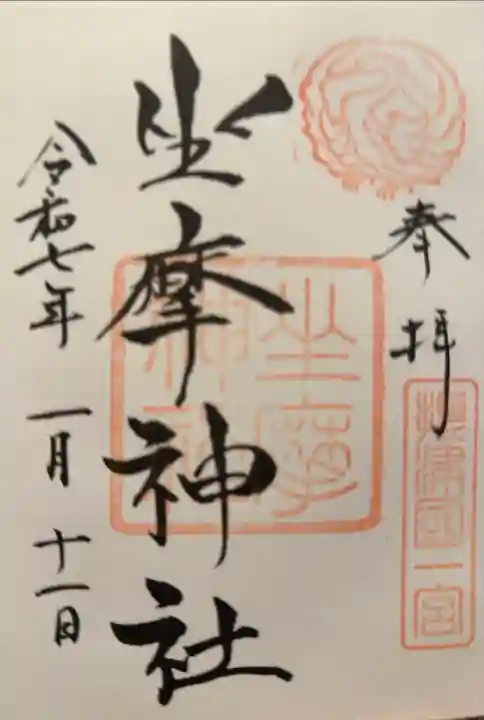 奉拝
摂津国一宮
坐摩神社
坐摩神社
令和七年 一月 十一日